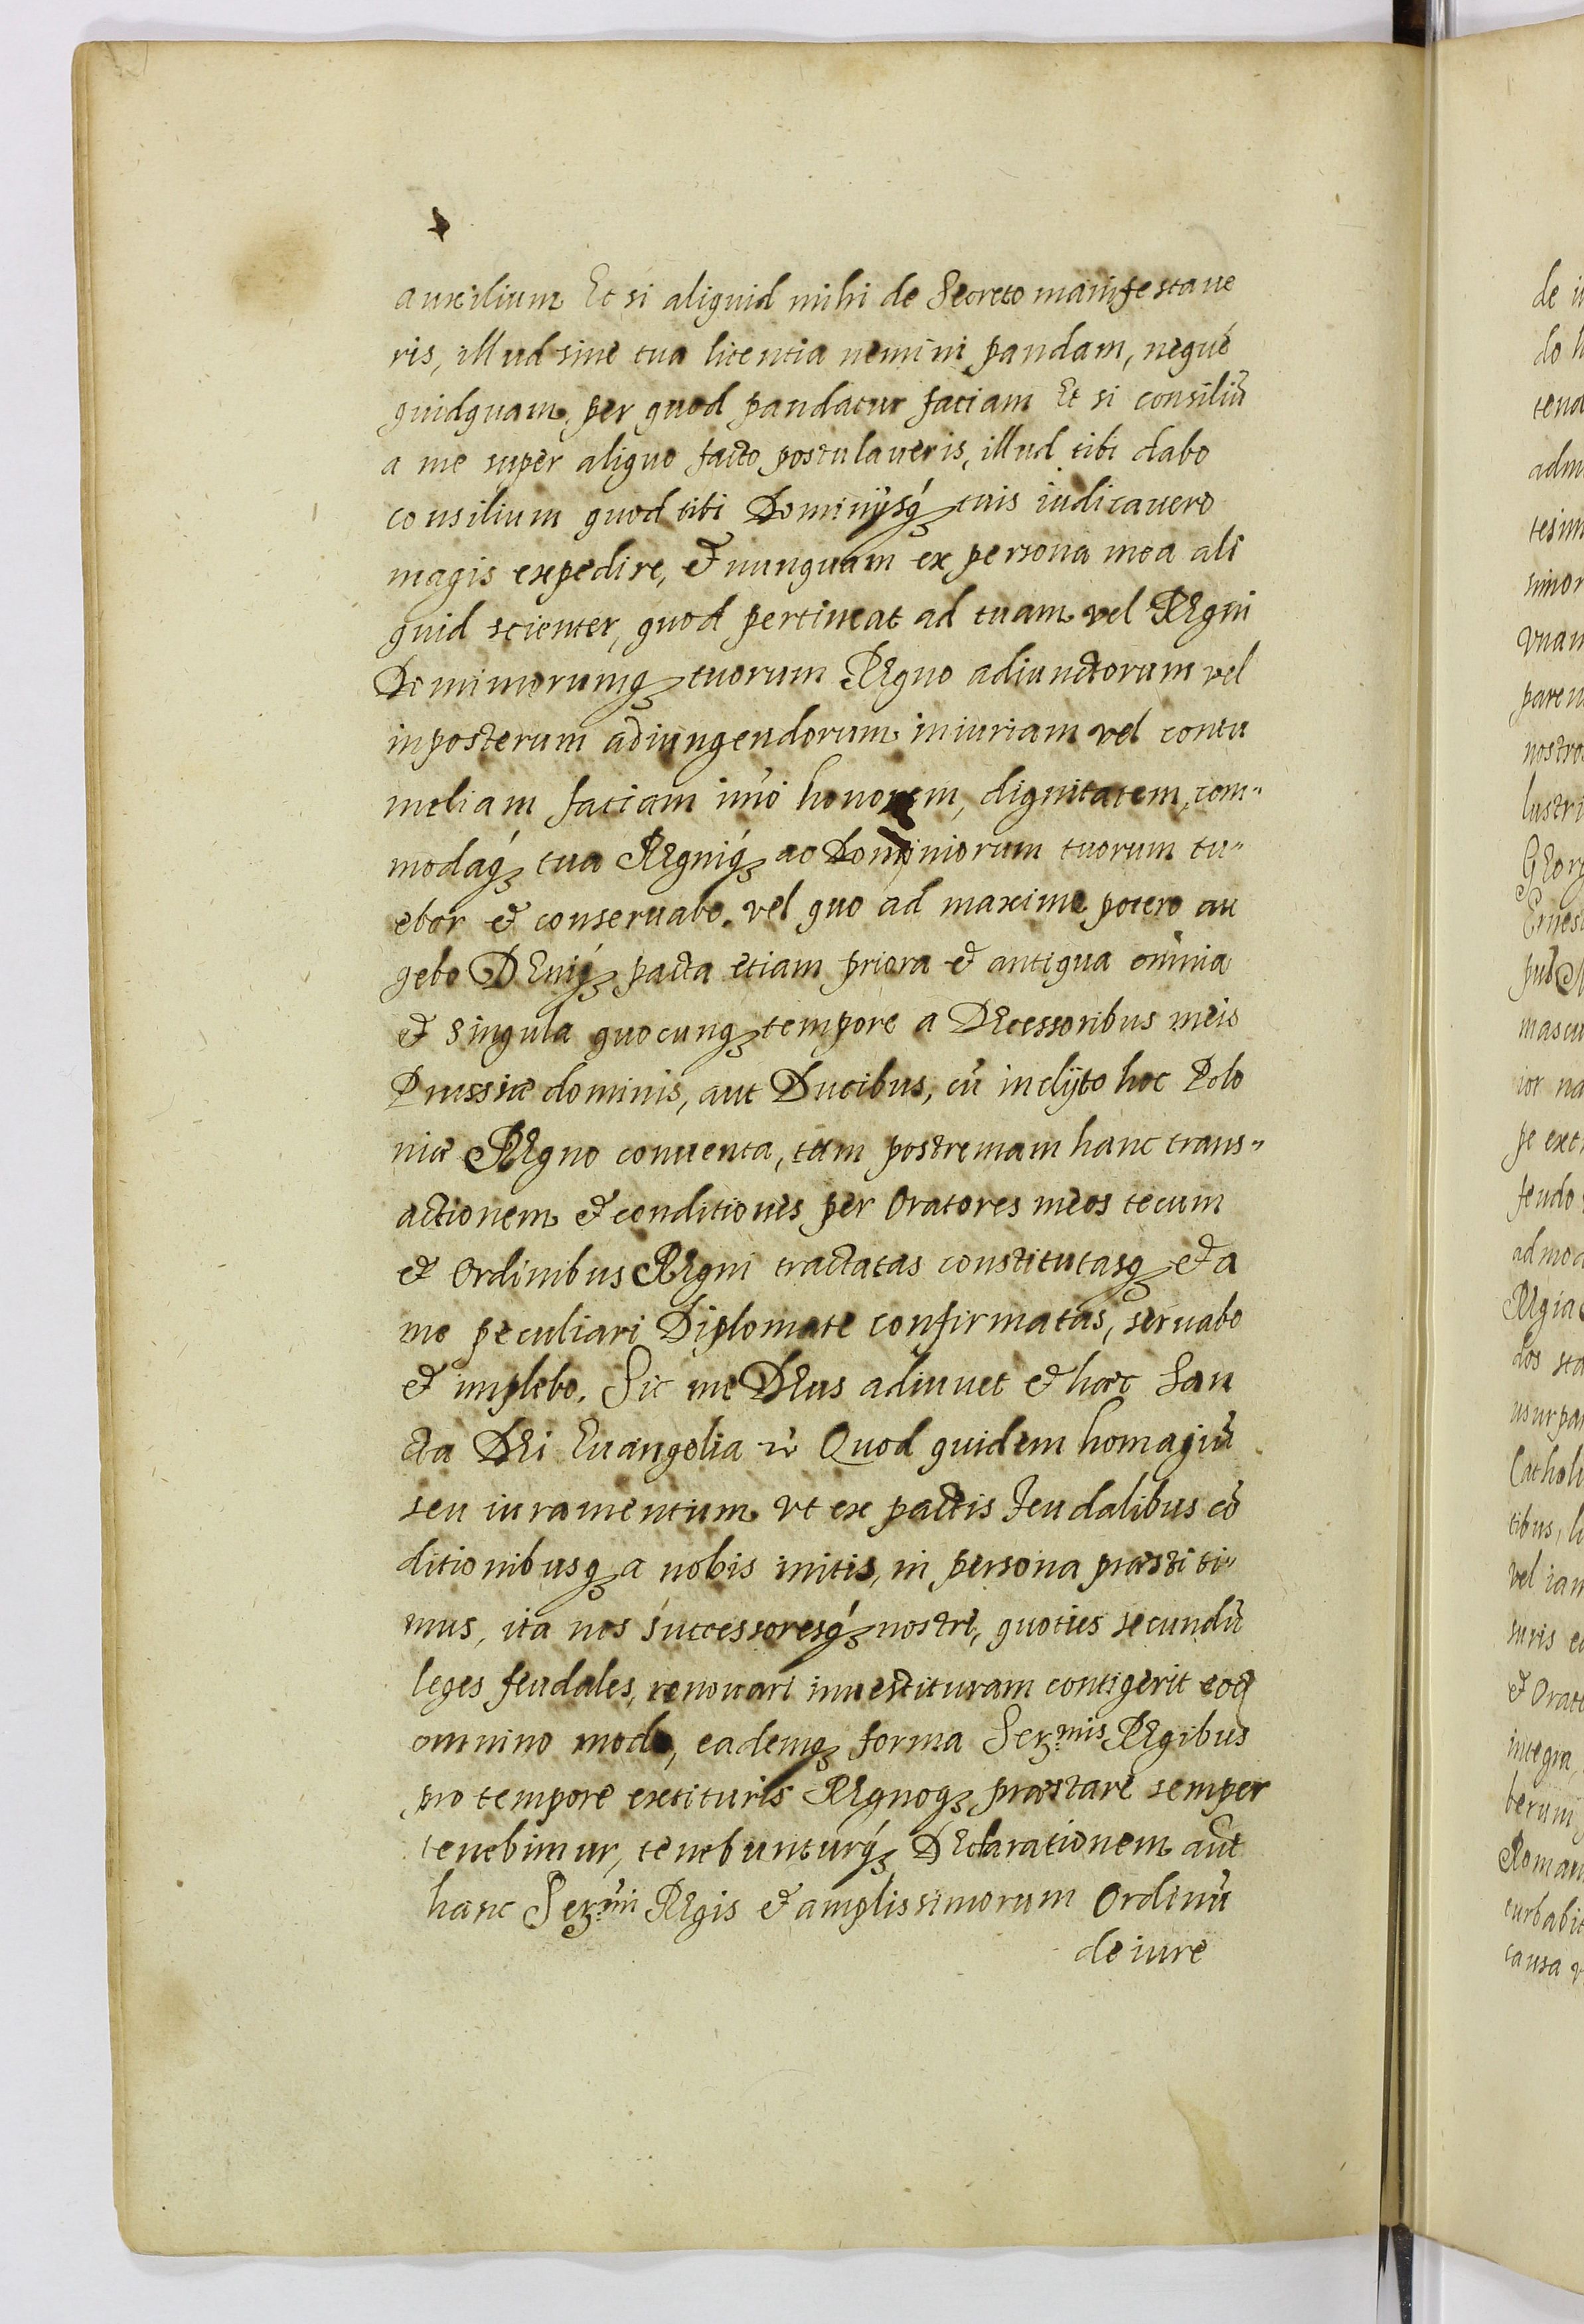 auxilium Et si aliquid mihi de Secreto manifestaue
ris, illud sine tua licentia nemini pandam, neque
quidquam, per quod pandatur faciam Et si consiliū
a me super aliquo facto postulaueris, illud tibi dabo
consilium quod tibi Dominijsq́ꝫ tuis iudicauero
magis expedire, & nunquam ex persona mea ali
quid scienter, quod pertineat ad tuam vel Regni
Dominiorumqꝫ tuorum Regno adiunctorum vel
inposterum adiungendorum iniuriam vel contu
meliam faciam imò honorem, dignitatem, com„
modaq́ꝫ tua Regniq́ꝫ ac Dominiorum tuorum tu„
ebor & conseruabo. vel quo ad maxime potero au
gebo Deniq́ꝫ pacta etiam priora & antiqua omnia
& singula quocunqꝫ tempore a Decessoribus meis
Prussiæ dominis, aut Ducibus, cū inclyto hoc Polo
niæ Regno conuenta, tum postremam hanc trans„
actionem & conditiones per Oratores meos tecum
& Ordinibus Regni tractatas constitutasqꝫ & a
me peculiari Diplomate confirmatas, seruabo
& implebo. Sic me Deus adiuuet & hæc San
cta Dei Euangelia Quod quidem homagiū
seu iuramentum vt ex pactis feudalibus cō
ditionibusqꝫ a nobis initis, in persona præstiti„
mus, ita nos successoresq́ꝫ nostri, quoties secundū
leges feudales, renouari inuestituram contigerit eoq́
omnino modo, eademqꝫ forma Serᵐⁱˢ Regibus
pro tempore extituris Regnoqꝫ præstare semper
tenebimur, tenebunturq́ꝫ Declarationem aūt
hanc Serᵐⁱ Regis & amplissimorum Ordinū
de iure